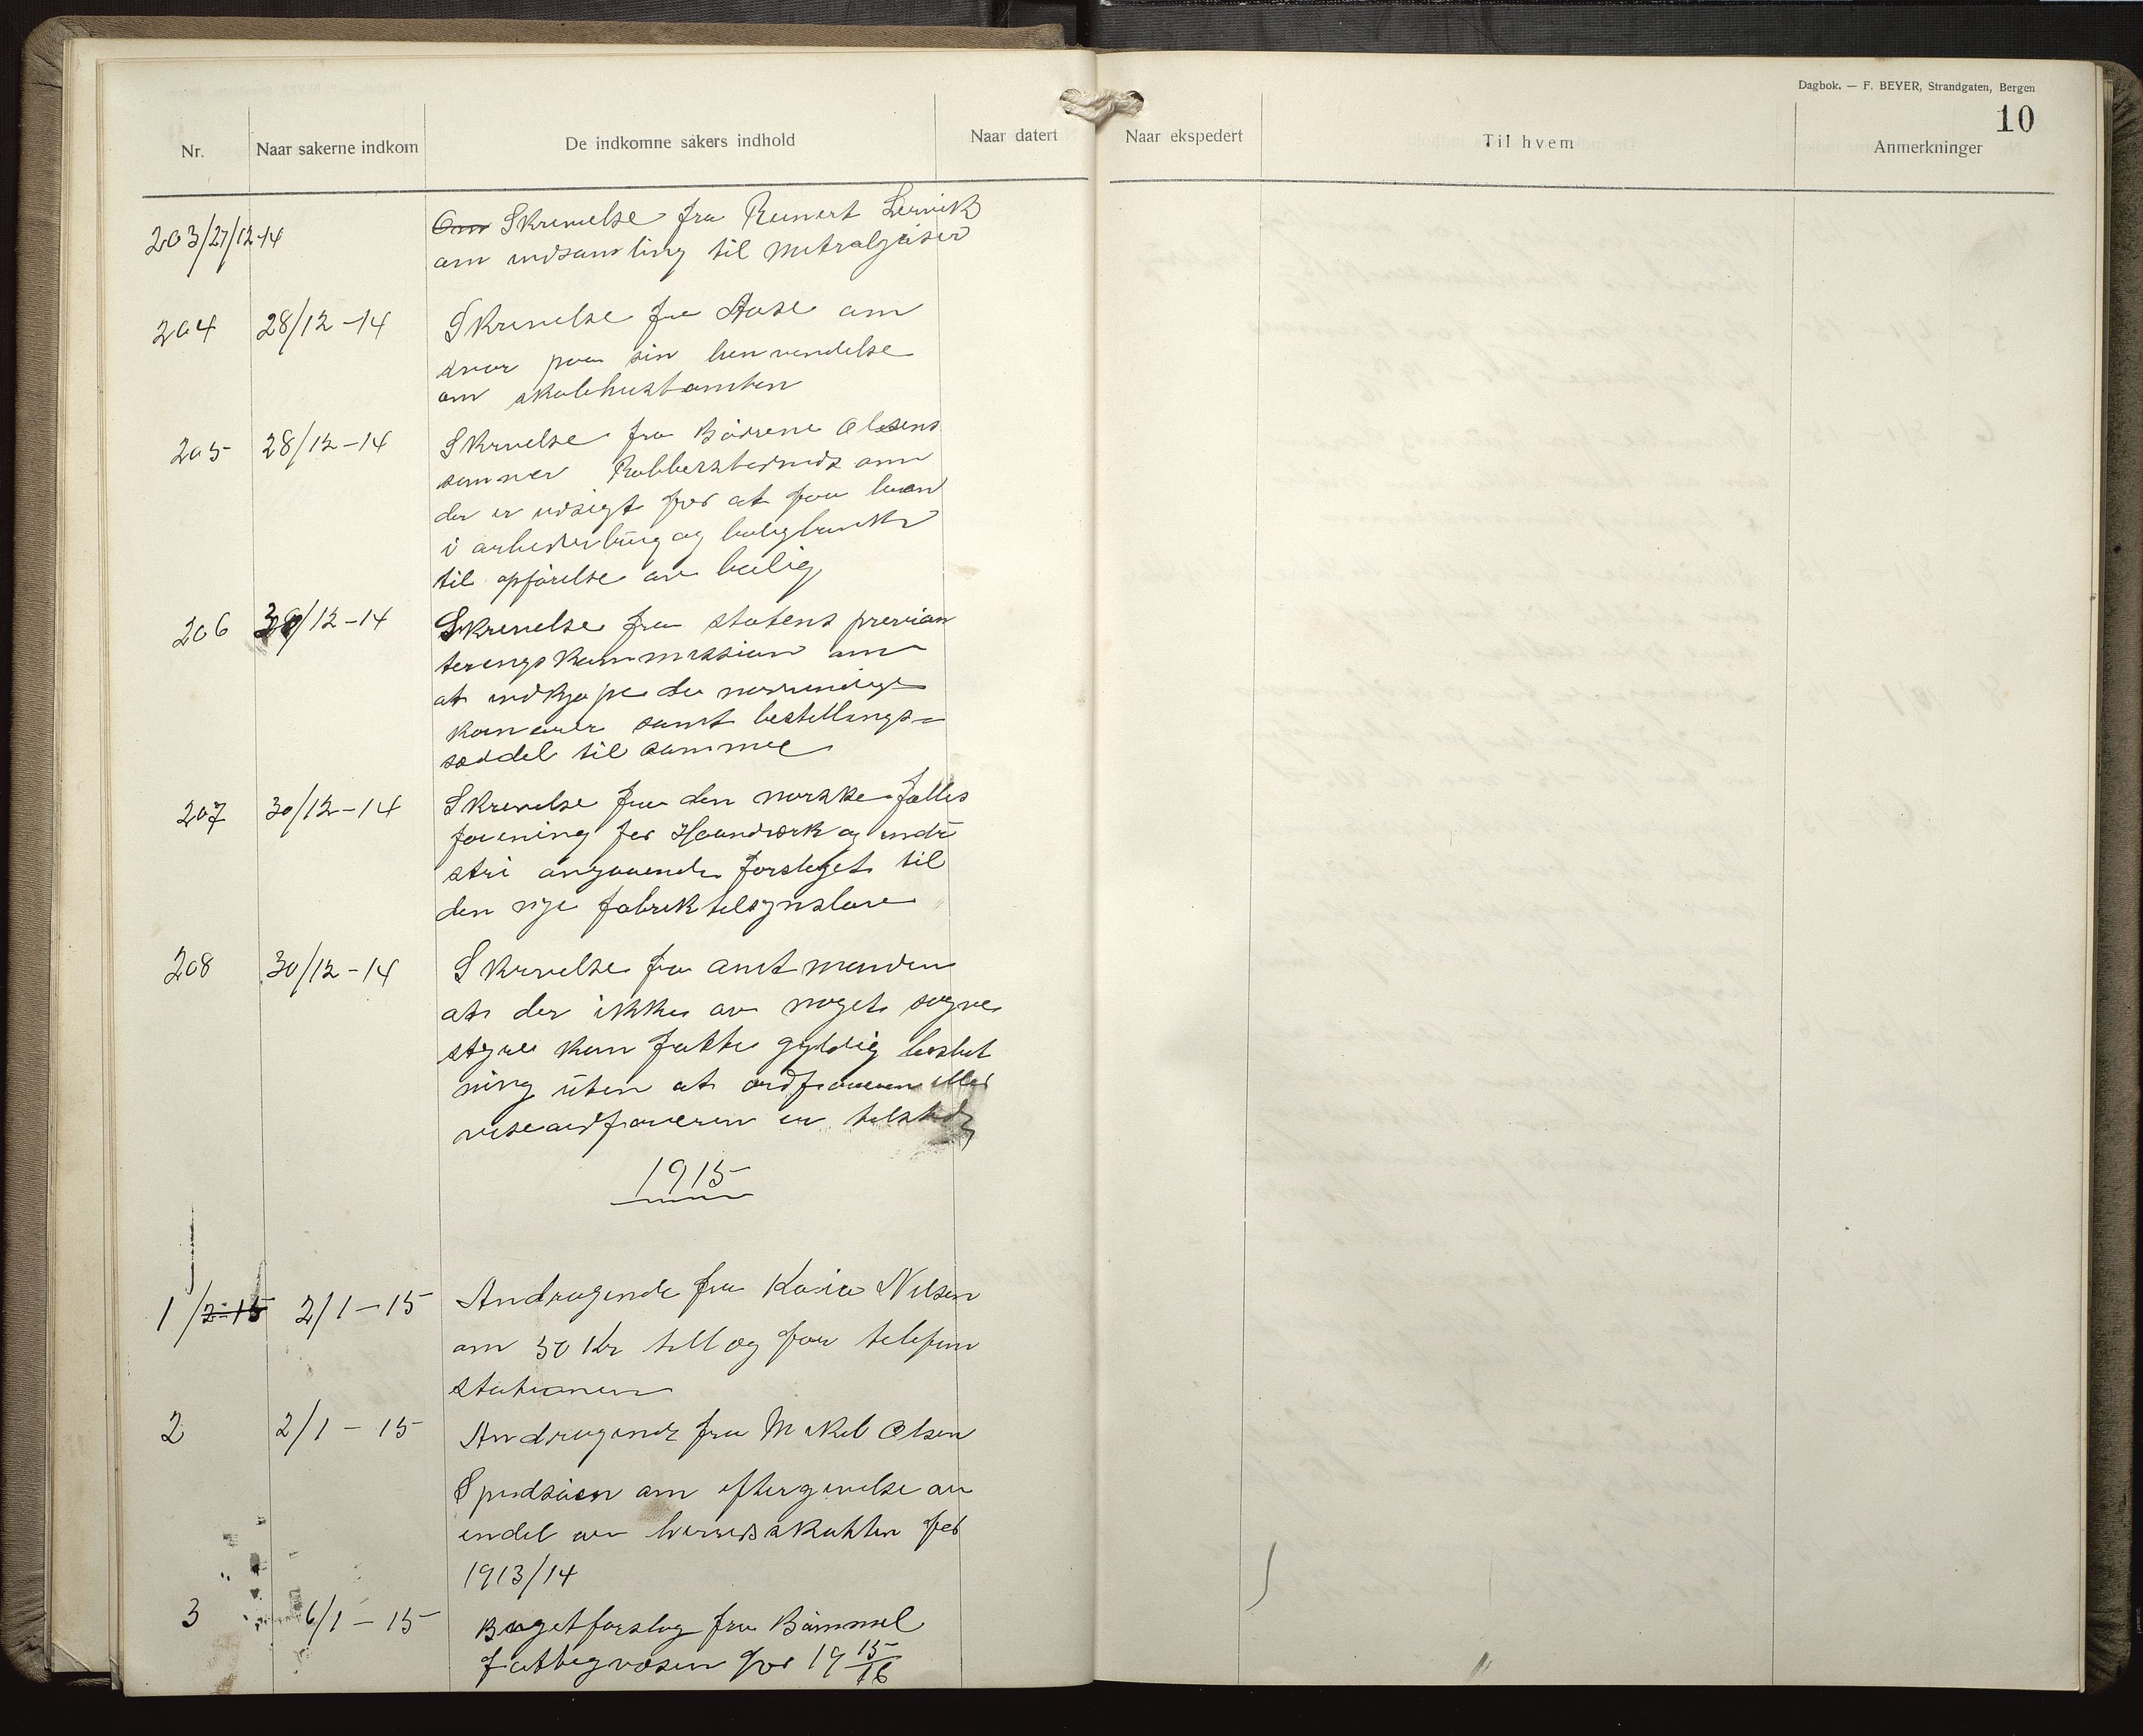 Dagbok. — F. BEYER, Strandgaten, Bergen
10
Nr. Naar sakerne indkom De indkomne sakers indhold Naar datert Naar ekspedert Til hvem Anmerkninger
203/27/12-14 Om Skrivelse fra Reinert Lervik
om indsamling til mitraljøser
204 28/12-14 Skrivelse fra Aase om
svar paa sin henvendelse
om skolehustomten
205 28/12-14 Skrivelse fra Børrene Olesens
sønner Rubbestadnes om
der er udsigt for at faa laan
i arbeiderbrug og boligbanke
til opførelse av bolig
206 30/12-14 Skrivelse fra statens provian
teringskommission om
at indkjøpe de nødvendige
kornvarer samt bestillings=
seddel til samme
207 30/12-14 Skrivelse fra den norske fælles
forening for Haandverk og indu
stri angaaende forslaget til
den nye fabriktilsynslove
208 30/12-14 Skrivelse fra amtmanden
at der ikke av noget sogne
styre kan fatte gyldig beslut
ning uten at ordføreren eller
viseordføreren er tilstede
1915
1 /2-15 2/1-15 Andragende fra Karia Nilsen
om 50 Kr tillæg for telefon
stationen
2 2/1-15 Andragende fra Mikel Olsen
om eftergivelse av
endel av herredsskatten for
1913/14
3 6/1-15 Bugetforslag fra Bømmel
fattigvæsen for 19 15/16